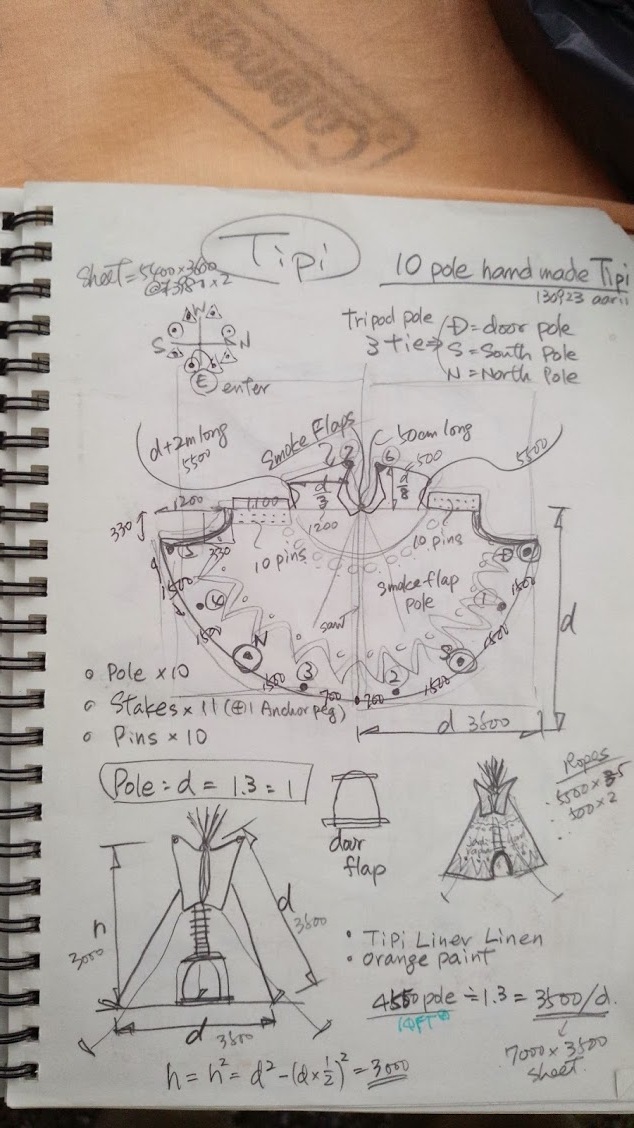 Coleman
Tipi
Sheet=5400×3600
@7398 × 2
10 pole hand made Tipi
130923 aarii
W
S
N
E
enter
Tripod pole
3 tie⇒
D=door pole
S=South Pole
N=North Pole
d+2m long
5500
Smoke Flaps
50cm long
5500
7
6
500
d/3
d/8
1200
1,100
1200
330
330
10 pins
10 pins
5
D
1500
1500
4
1
smoke flap
pole
d
1500
1500
N
S
3
2
1500
700
700
1500
d 3600
Pole ×10
Stakes × 11 (⊕1 Anchor peg)
Pins × 10
Pole = d = 1.3 = 1
door
flap
Ropes
500×2
h
3000
d
d
Tipi Liner Linen
orange paint
4550 pole ÷ 1.3 = 3500/d.
7000×3500
sheet
h = h² = d² − (d×½)² = 3000